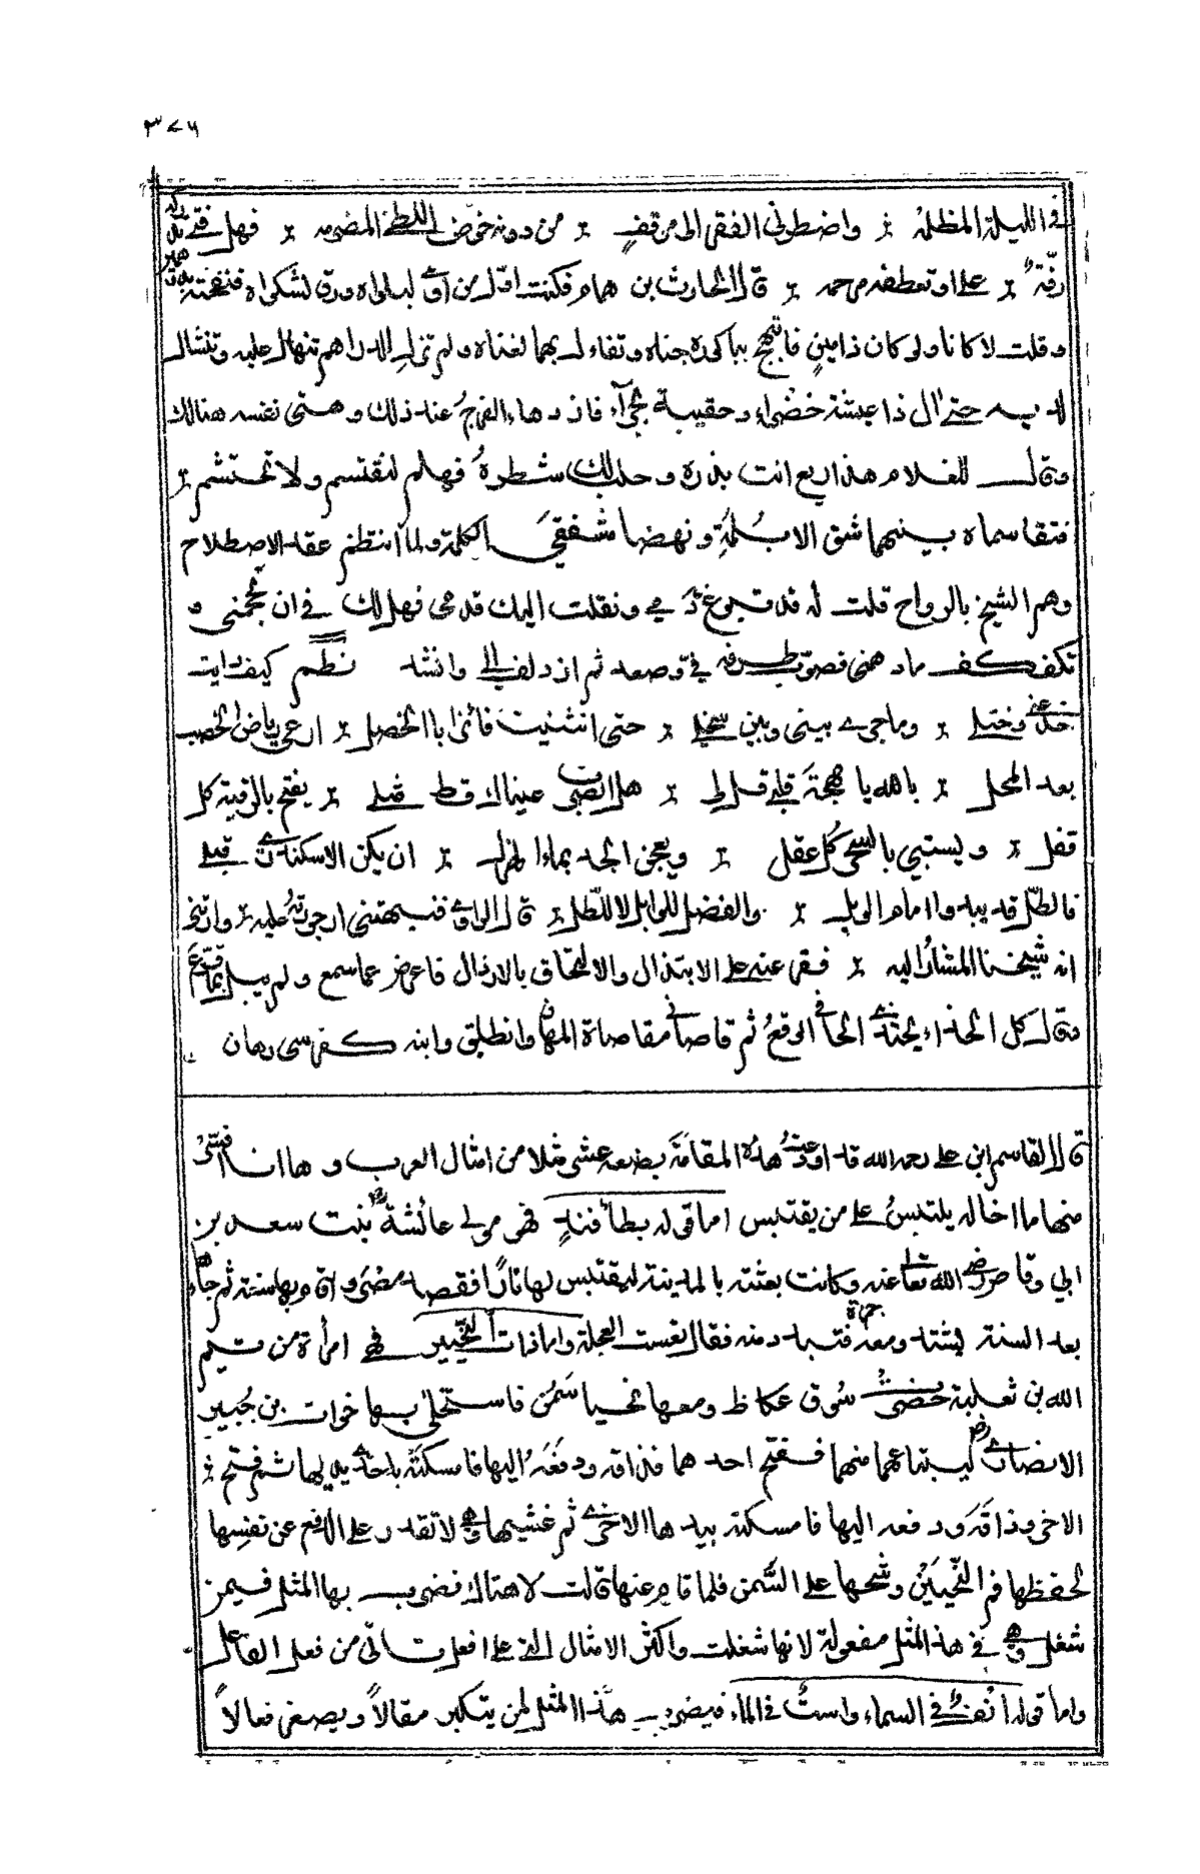 ٣٧٦
في الليلة المظلمة واضطرني الفقر الى موقف من دونه خوض اللظى المضرمه فهل فتى تدركه
رقة علي او تعطفه مرحمه قال الحارث بن همام فكنت اول من اوى لبلواه ورق لشكواه فنفحته
وقلت لا كانا ولو كان ذا مين فابتهج بباكورة جناه وتفاءل بهما لغناه ولم تزل الدراهم تنهال عليه وتنثال
لديه حتى آل ذا عيشة خضراء وحقيبة بجراء فازدهاه الفرح عند ذلك وهنى نفسه هنالك
وقال للغلام هذا ريع انت بذره وحلب لك شطره فهلم لنقتسم ولا تحتشم
فتقاسماه بينهما شق الابلمة ونهضا متفقي الكلمة ولما انتظم عقد الاصطلاح
وهم الشيخ بالرواح قلت له قد تبوغ دمي ونقلت اليك قدمي فهل لك في ان تحجمني و
تكف ما دهمني فصوب طرفه في وصعد ثم ازدلف الي وانشد نظم كيف رايت
خدعتي وختلي وما جرى بيني وبين سخلي حتى انثنيت فائزا بالخصل ارعى رياض الخصب
بعد المحل بالله يا مهجة قلبي قل لي هل ابصرت عيناك قط مثلي يفتح بالرقية كل
قفل ويستبي بالسحر كل عقل ويعجن الجد بماء الهزل ان يكن الاسكندري قبلي
فالطل قد يبدو امام الوبل والفضل للوابل لا للطل قال الراوي فنبهتني ارجوزته عليه وارتني
انه شيخنا المشار اليه فقرعته على الابتذال والالتحاق بالارذال فاعرض عما سمع ولم يبل بما قرع
وقال كل الحذاء يحتذي الحافي الوقع ثم قاصاني مقاصاة المهان وانطلق وابنه كفرسي رهان
قال القاسم ابن علي رحمه الله قد اودعت هذه المقامة بضعة عشر مثلا من امثال العرب وها انا افسر
منها ما اخاله يلتبس على من يقتبس اما قوله بطأ فند فهو مولى عائشة بنت سعد بن
ابي وقاص رضي الله تعالى عنه وكانت بعثته بالمدينة ليقتبس لها نارا فقصد مصر واقام بها سنة ثم جاء
بعد السنة يشتد ومعه جمرة فتبدد منه فقال تعست العجلة واما ذات النحيين فهي امرأة من تيم
الله بن ثعلبة حضرت سوق عكاظ ومعها نحيا سمن فاستخلى بها خوات بن جبير
الانصاري رض ليبتاعهما منها ففتح احدهما فذاقه ودفعه اليها فامسكته باحدى يديها ثم فتح
الاخر وذاقه ودفعه اليها فامسكته بيدها الاخرى ثم غشيها وهي لا تقدر على الدفع عن نفسها
لحفظها فم النحيين وشحها على السمن فلما قام عنها قالت لا هناك فضرب بها المثل فيمن
شغل وهي في هذا المثل مفعولة لانها شغلت واكثر الامثال التي على افعل تاتي من فعل الفاعل
واما قوله انف في السماء واست في الماء فيضرب هذا المثل لمن يتكبر مقالا ويصغر فعالا